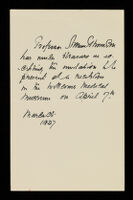 Professor
has much pleasure in ac
cepting the invitation to be
present at a reception
in the Wellcome Medical
Museum on April 7th
March 26
1927